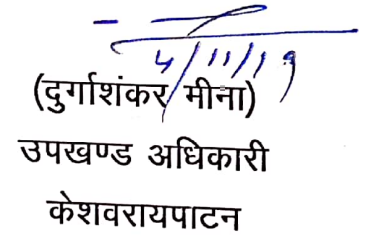 4/11/19
(दुर्गाशंकर मीना)
उपखण्ड अधिकारी
केशवरायपाटन